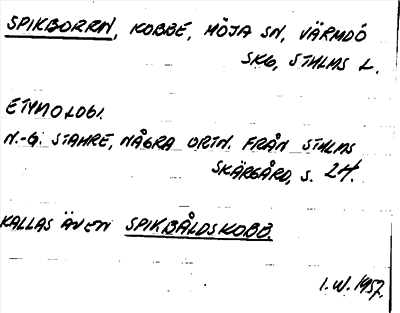 SPIKBORRN, KOBBE, MÖJA SN, VÄRMDÖ
SKG, STHLMS L.
ETYMOLOGI.
N.-G. STAHRE, NÅGRA ORTN. FRÅN STHLMS
SKÄRGÅRD, S. 24.
KALLAS ÄVEN SPIKBÅLDSKOBB.
I.W. 1957.